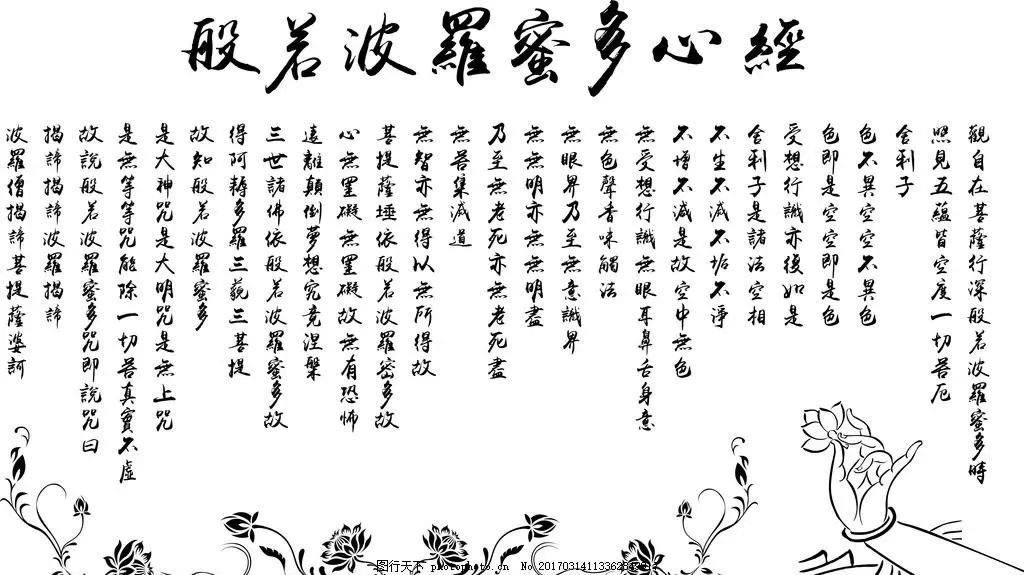 般若波羅蜜多心經
觀自在菩薩行深般若波羅蜜多時
照見五蘊皆空度一切苦厄
舍利子
色不異空空不異色
色即是空空即是色
受想行識亦復如是
舍利子是諸法空相
不生不滅不垢不淨
不增不減是故空中無色
無受想行識無眼耳鼻舌身意
無色聲香味觸法
無眼界乃至無意識界
無無明亦無無明盡
乃至無老死亦無老死盡
無苦集滅道
無智亦無得以無所得故
菩提薩埵依般若波羅密多故
心無罣礙無罣礙故無有恐怖
遠離顛倒夢想究竟涅槃
三世諸佛依般若波羅蜜多故
得阿耨多羅三藐三菩提
故知般若波羅蜜多
是大神咒是大明咒是無上咒
是無等等咒能除一切苦真實不虛
故說般若波羅蜜多咒即說咒曰
揭諦揭諦波羅揭諦
波羅僧揭諦菩提薩婆訶
图行天下 photophoto.cn